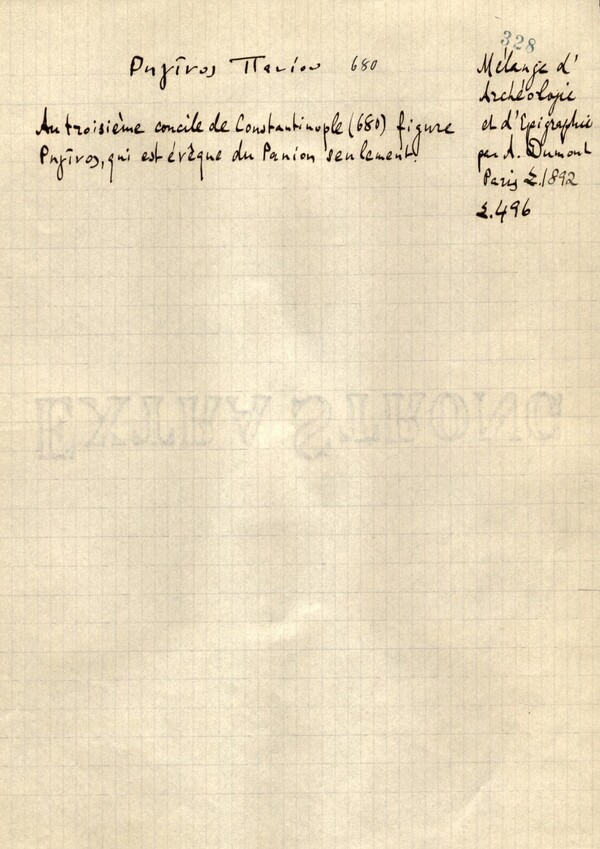 328
Ρηγῖνος Πανίου 680
Au troisième concile de Constantinople (680) figure
Ρηγῖνος, qui est évêque du Panion seulement.
Mélange d'
Archéologie
et d'Epigraphie
par A. Dumont
Paris Σ.1892
Σ.496
EXTRA STRONG